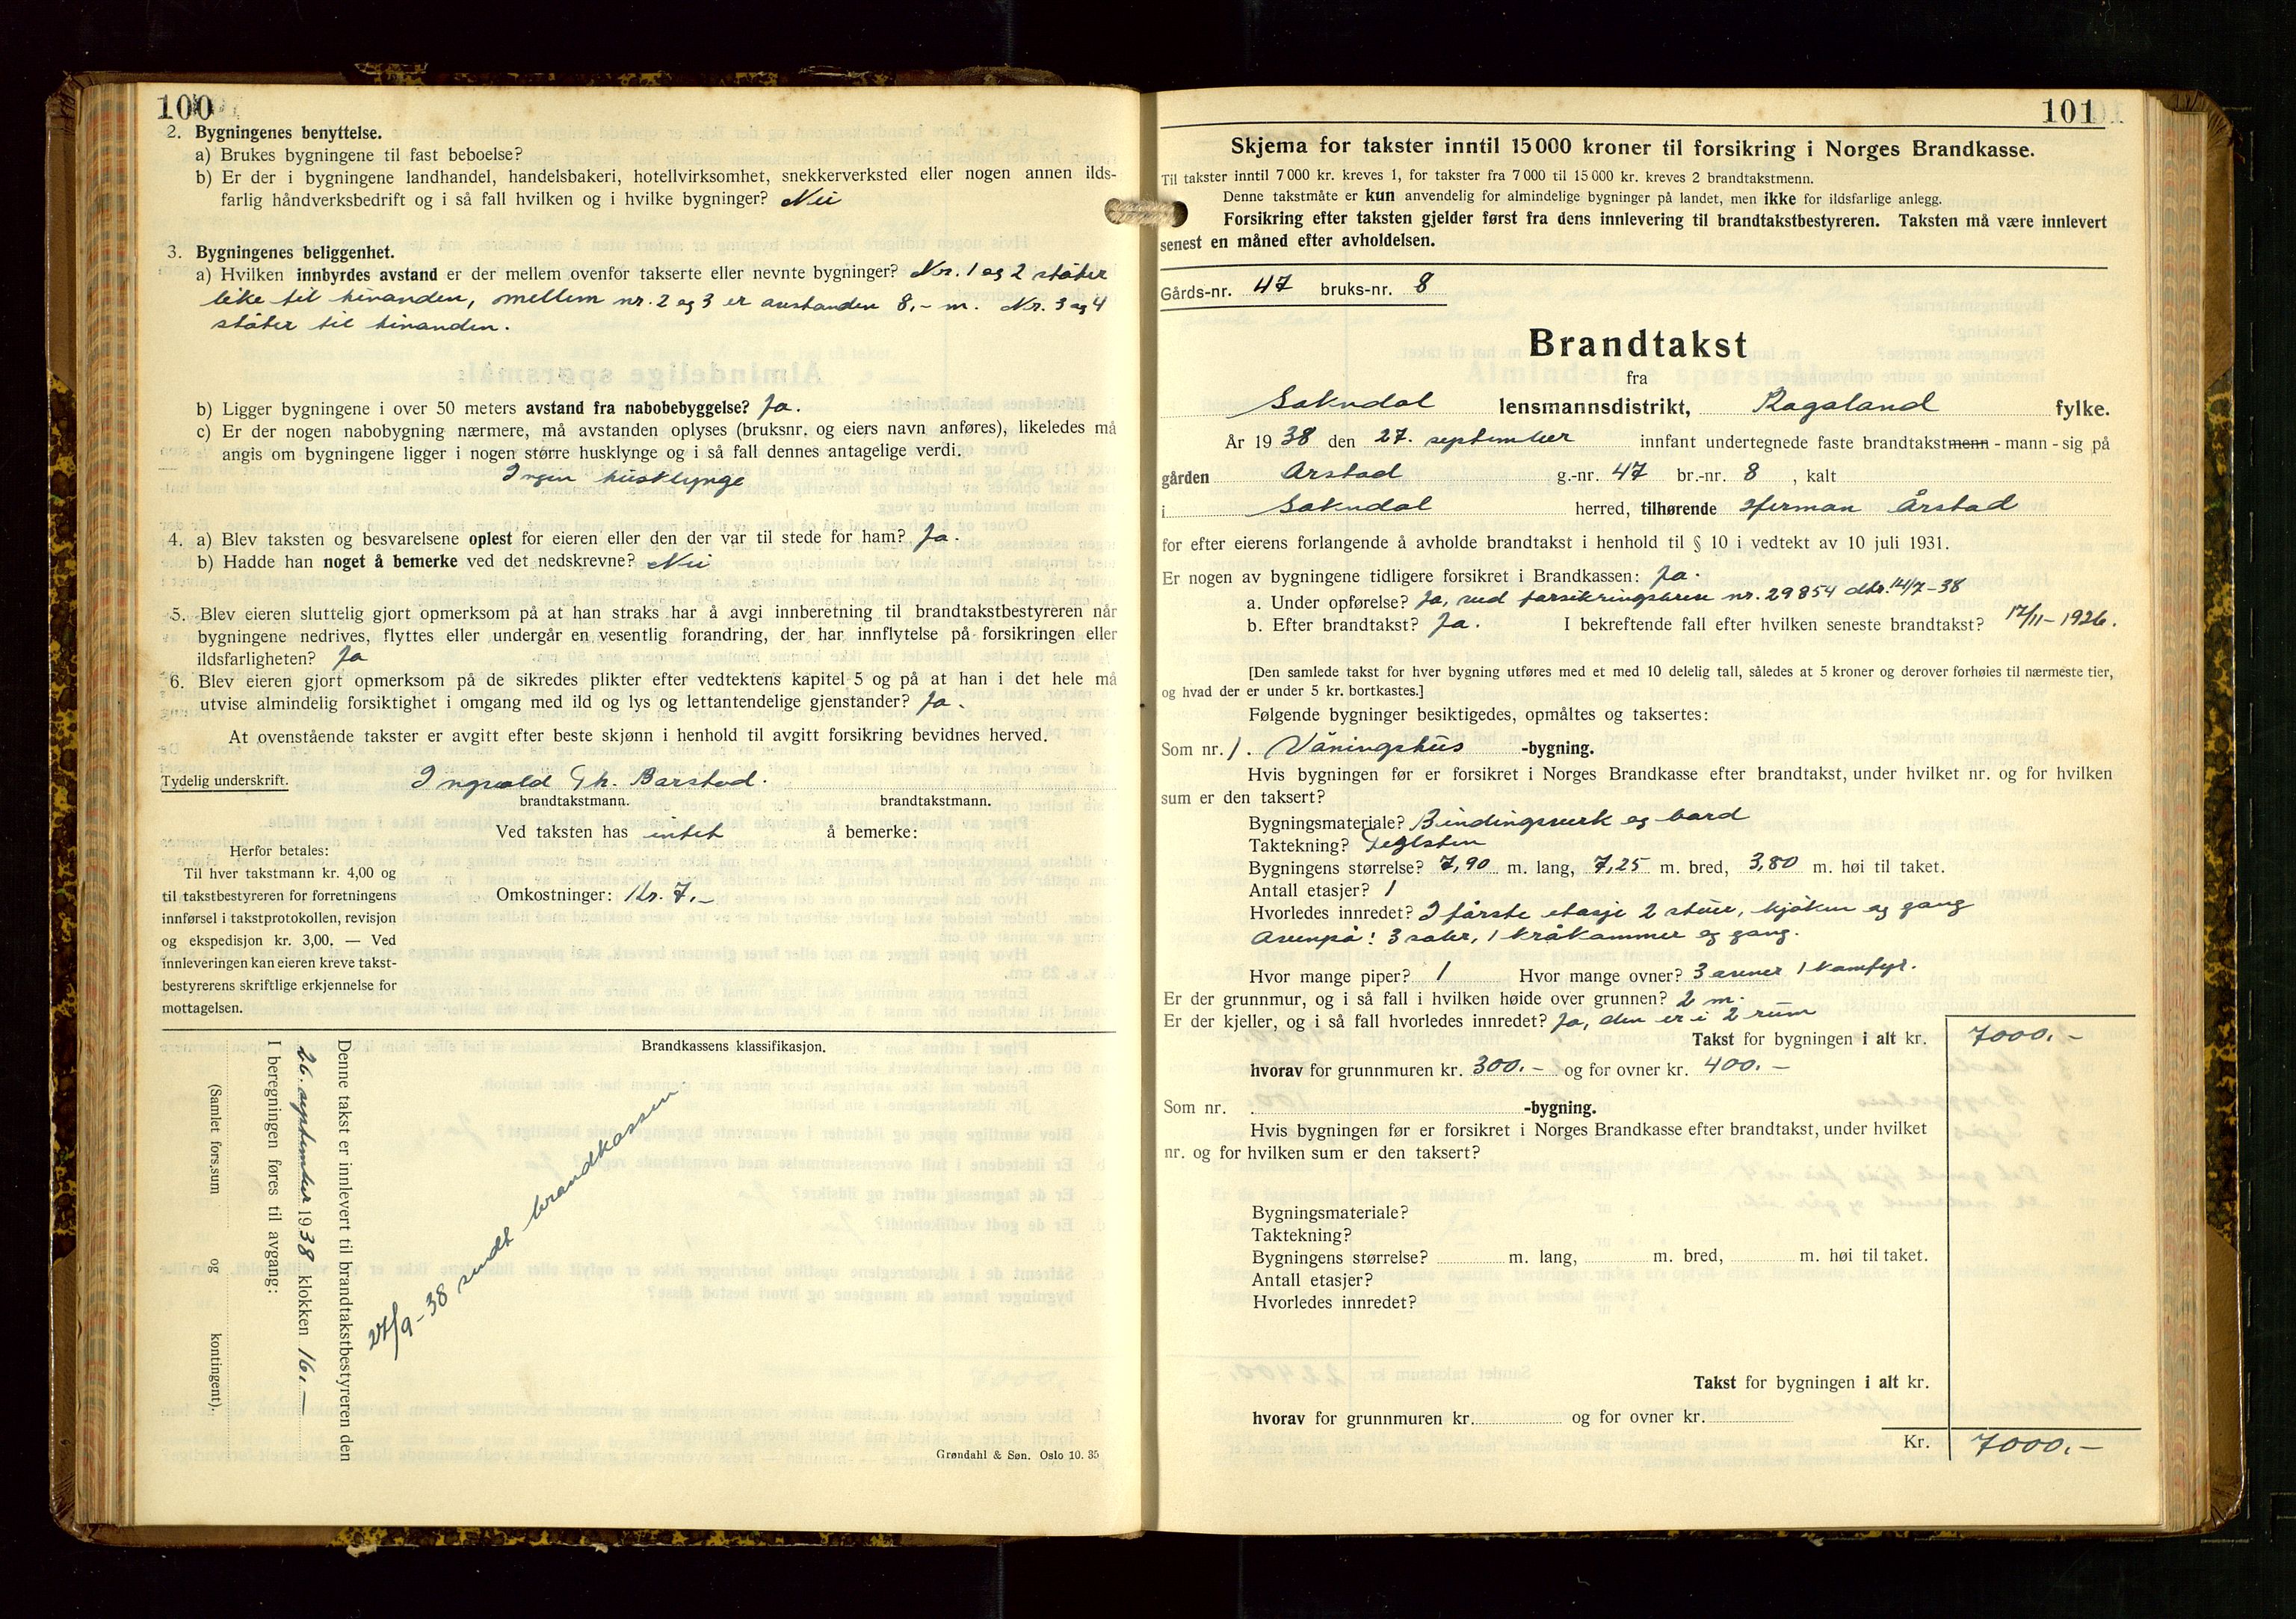 100
2. Bygningenes benyttelse.
a) Brukes bygningene til fast beboelse?
b) Er der i bygningene landhandel, handelsbakeri, hotellvirksomhet, snekkerverksted eller nogen annen ilds-
farlig håndverksbedrift og i så fall hvilken og i hvilke bygninger? Nei
3. Bygningenes beliggenhet.
a) Hvilken innbyrdes avstand er der mellem ovenfor takserte eller nevnte bygninger? Nr. 1 og 2 støter
like til hinanden, mellem nr. 2 og 3 er avstanden 8,- m. Nr. 3 og 4
støter til hinanden.
b) Ligger bygningene i over 50 meters avstand fra nabobebyggelse? Ja.
c) Er der nogen nabobygning nærmere, må avstanden oplyses (bruksnr. og eiers navn anføres), likeledes må
angis om bygningene ligger i nogen større husklynge og i så fall dennes antagelige verdi.
Ingen husklynge
4. a) Blev taksten og besvarelsene oplest for eieren eller den der var til stede for ham? Ja.
b) Hadde han noget å bemerke ved det nedskrevne? Nei
5. Blev eieren sluttelig gjort opmerksom på at han straks har å avgi innberetning til brandtakstbestyreren når
bygningene nedrives, flyttes eller undergår en vesentlig forandring, der har innflytelse på forsikringen eller
ildsfarligheten? Ja
6. Blev eieren gjort opmerksom på de sikredes plikter efter vedtektens kapitel 5 og på at han i det hele må
utvise almindelig forsiktighet i omgang med ild og lys og lettantendelige gjenstander? Ja.
At ovenstående takster er avgitt efter beste skjønn i henhold til avgitt forsikring bevidnes herved.
Tydelig underskrift. Ingvald Th. Barstad.
brandtakstmann. brandtakstmann.
Ved taksten has intet å bemerke:
Herfor betales:
Til hver takstmann kr. 4,00 og
til takstbestyreren for forretningens
innførsel i takstprotokollen, revisjon
og ekspedisjon kr. 3,00. — Ved
innleveringen kan eieren kreve takst-
bestyrerens skriftlige erkjennelse for
mottagelsen.
Omkostninger: Kr. 7.-
Brandkassens klassifikasjon.
Denne takst er innlevert til brandtakstbestyreren den
26. september 1938 klokken 16.-
I beregningen føres til avgang:
(Samlet fors.sum og kontingent).
27/9-38 sendt brandkassen
Grøndahl & Søn. Oslo 10. 35
101
Skjema for takster inntil 15 000 kroner til forsikring i Norges Brandkasse.
Til takster inntil 7 000 kr. kreves 1, for takster fra 7 000 til 15 000 kr. kreves 2 brandtakstmenn.
Denne takstmåte er kun anvendelig for almindelige bygninger på landet, men ikke for ildsfarlige anlegg.
Forsikring efter taksten gjelder først fra dens innlevering til brandtakstbestyreren. Taksten må være innlevert
senest en måned efter avholdelsen.
Gårds-nr. 47 bruks-nr. 8
Brandtakst
fra
Sokndal lensmannsdistrikt, Rogaland fylke.
År 1938 den 27. september innfant undertegnede faste brandtakstmenn - mann - sig på
gården Årstad g.-nr. 47 br.-nr. 8, kalt
i Sokndal herred, tilhørende Herman Årstad
for efter eierens forlangende å avholde brandtakst i henhold til § 10 i vedtekt av 10 juli 1931.
Er nogen av bygningene tidligere forsikret i Brandkassen: Ja.
a. Under opførelse? Ja, ved forsikringsbrev nr. 29854 dtr. 14/7-38
b. Efter brandtakst? Ja. I bekreftende fall efter hvilken seneste brandtakst? 17/11-1926.
[Den samlede takst for hver bygning utføres med et med 10 delelig tall, således at 5 kroner og derover forhøies til nærmeste tier,
og hvad der er under 5 kr. bortkastes.]
Følgende bygninger besiktigedes, opmåltes og taksertes:
Som nr. 1. Våningshus -bygning.
Hvis bygningen før er forsikret i Norges Brandkasse efter brandtakst, under hvilket nr. og for hvilken
sum er den taksert?
Bygningsmateriale? Bindingsverk og bord
Taktekning? Teglsten
Bygningens størrelse? 7,90 m. lang, 7,25 m. bred, 3,80 m. høi til taket.
Antall etasjer? 1
Hvorledes innredet? I første etasje 2 stuer, kjøken og gang
Ovenpå: 3 saler, 1 kråkammer og gang.
Hvor mange piper? 1 Hvor mange ovner? 3 ovner 1 komfyr.
Er der grunnmur, og i så fall i hvilken høide over grunnen? 2 m.
Er der kjeller, og i så fall hvorledes innredet? Ja, den er i 2 rum
Takst for bygningen i alt kr. 7000.-
hvorav for grunnmuren kr. 300.- og for ovner kr. 400.-
Som nr. -bygning.
Hvis bygningen før er forsikret i Norges Brandkasse efter brandtakst, under hvilket
nr. og for hvilken sum er den taksert?
Bygningsmateriale?
Taktekning?
Bygningens størrelse? m. lang, m. bred, m. høi til taket.
Antall etasjer?
Hvorledes innredet?
Takst for bygningen i alt kr.
hvorav for grunnmuren kr. og for ovner kr.
Kr. 7000.-